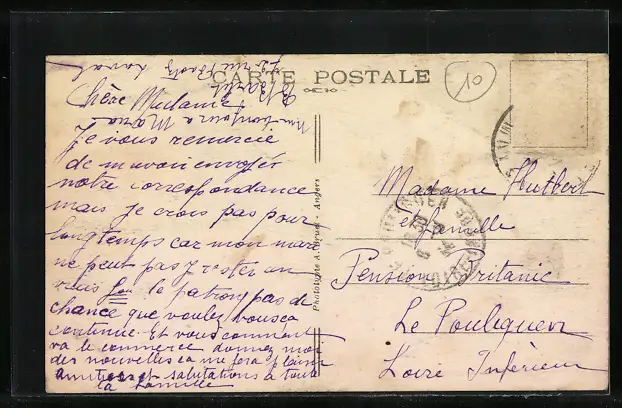 CARTE POSTALE
10
Chère Madame
Je vous remercie
de m'avoir envoyer
notre correspondance
mais je crois pas pour
longtemps car mon mari
ne peut pas y rester en
vue le patron pas de
chance que voulez vous ca
continue Et vous comment
va le commerce donnez moi
des nouvelles ca me fera plaisir
amitiers et salutations à toute
la famille
12 rue Laval
Phototypie A. Bruel - Angers
Madame Hubert
et famille
Pension Britanic
Le Pouliguen
Loire Inférieur